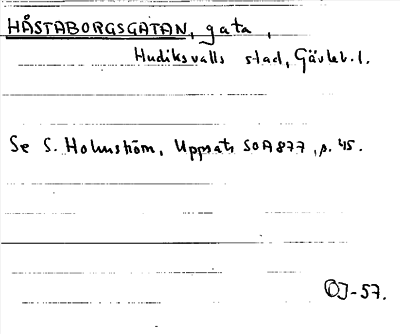 HÅSTABORGSGATAN, gata,
Hudiksvalls stad, Gävleb. l.
Se S. Holmström, Uppsats SOA 877, s. 45.
OJ-57.